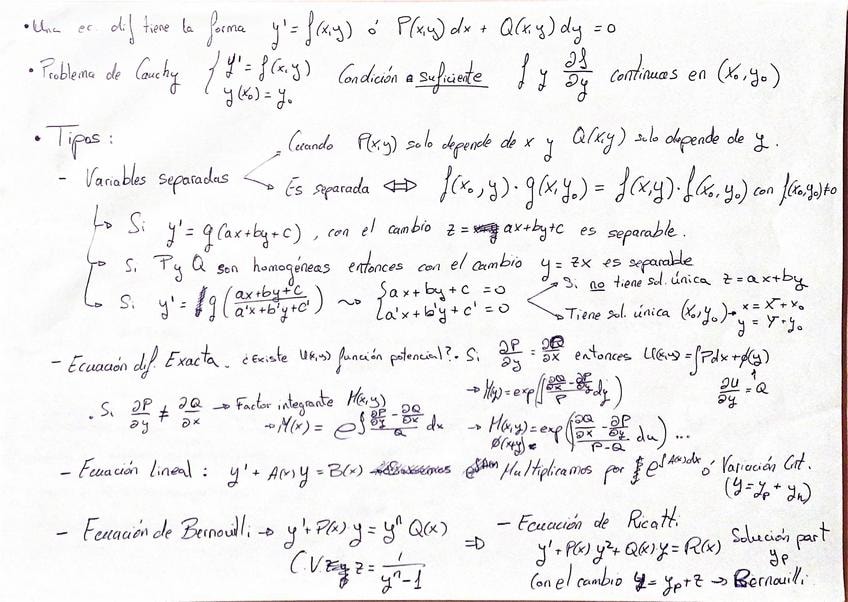 • Una ec. dif tiene la forma y' = f(x,y) ó P(x,y) dx + Q(x,y) dy = 0
• Problema de Cauchy { y' = f(x,y) y(x₀) = y₀ Condición suficiente f y ∂f/∂y continuas en (x₀,y₀)
• Tipos:
- Variables separadas
- Cuando P(x,y) solo depende de x y Q(x,y) solo depende de y.
- Es separada ⇔ f(x₀,y)·g(x,y₀) = f(x,y)·f(x₀,y₀) con f(x₀,y₀)≠0
↳ Si y' = g(ax+by+c), con el cambio z = ax+by+c es separable.
↳ Si P y Q son homogéneas entonces con el cambio y = zx es separable
↳ Si y' = g((ax+by+c)/(a'x+b'y+c')) ⤳ { ax+by+c = 0 a'x+b'y+c' = 0
Si no tiene sol. única z = ax+by
Tiene sol. única (x₀,y₀) → x = X+x₀
y = Y+y₀
- Ecuación dif. Exacta. ¿Existe U(x,y) función potencial?. Si ∂P/∂y = ∂Q/∂x entonces U(x,y) = ∫Pdx + φ(y)
∂U/∂y = Q
• Si ∂P/∂y ≠ ∂Q/∂x → Factor integrante M(x,y)
→ M(x) = e^∫ (∂P/∂y - ∂Q/∂x)/Q dx
→ M(y) = exp(∫ (∂Q/∂x - ∂P/∂y)/P dy)
→ M(x,y) = exp(∫ (∂Q/∂x - ∂P/∂y)/(P-Q) du) ...
φ(x+y)
- Ecuación lineal: y' + A(x) y = B(x) Multiplicamos por e^∫A(x)dx ó Variación Cnt.
(y = yp + yh)
- Ecuación de Bernouilli → y' + P(x)·y = yⁿ Q(x)
C.V. z = 1/(yⁿ-1)
⇒ - Ecuación de Ricatti
y' + P(x) y² + Q(x)·y = R(x) Solución part
yp
Con el cambio y = yp+z → Bernouilli.